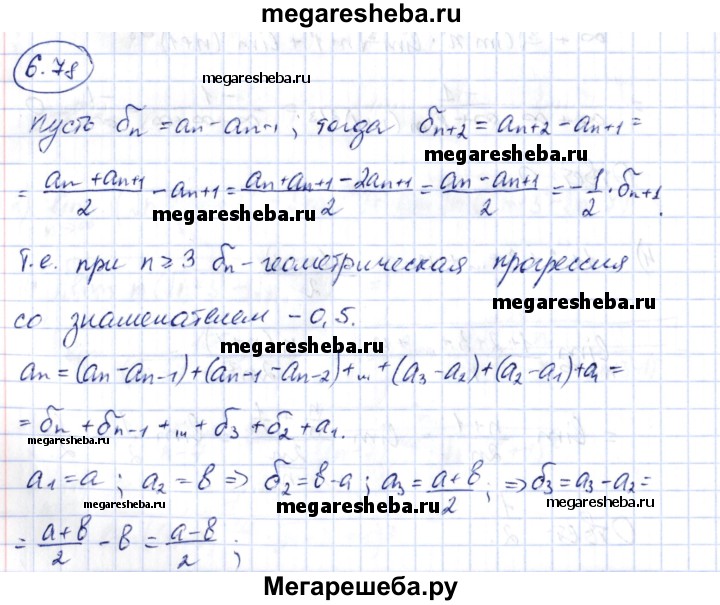 megaresheba.ru
6.78
megaresheba.ru
Пусть δn = an - an-1; тогда δn+2 = an+2 - an+1 =
megaresheba.ru
= (an + an+1)/2 - an+1 = (an + an+1 - 2an+1)/2 = (an - an+1)/2 = -1/2 · δn+1.
megaresheba.ru
Т.е. при n ≥ 3 δn - геометрическая прогрессия
megaresheba.ru
со знаменателем -0,5.
megaresheba.ru
an = (an - an-1) + (an-1 - an-2) + ... + (a3 - a2) + (a2 - a1) + a1 =
= δn + δn-1 + ... + δ3 + δ2 + a1.
megaresheba.ru
megaresheba.ru
a1 = a; a2 = b => δ2 = b - a; a3 = (a + b)/2; => δ3 = a3 - a2 =
megaresheba.ru
megaresheba.ru
megaresheba.ru
= (a + b)/2 - b = (a - b)/2;
Мегарешеба.ру